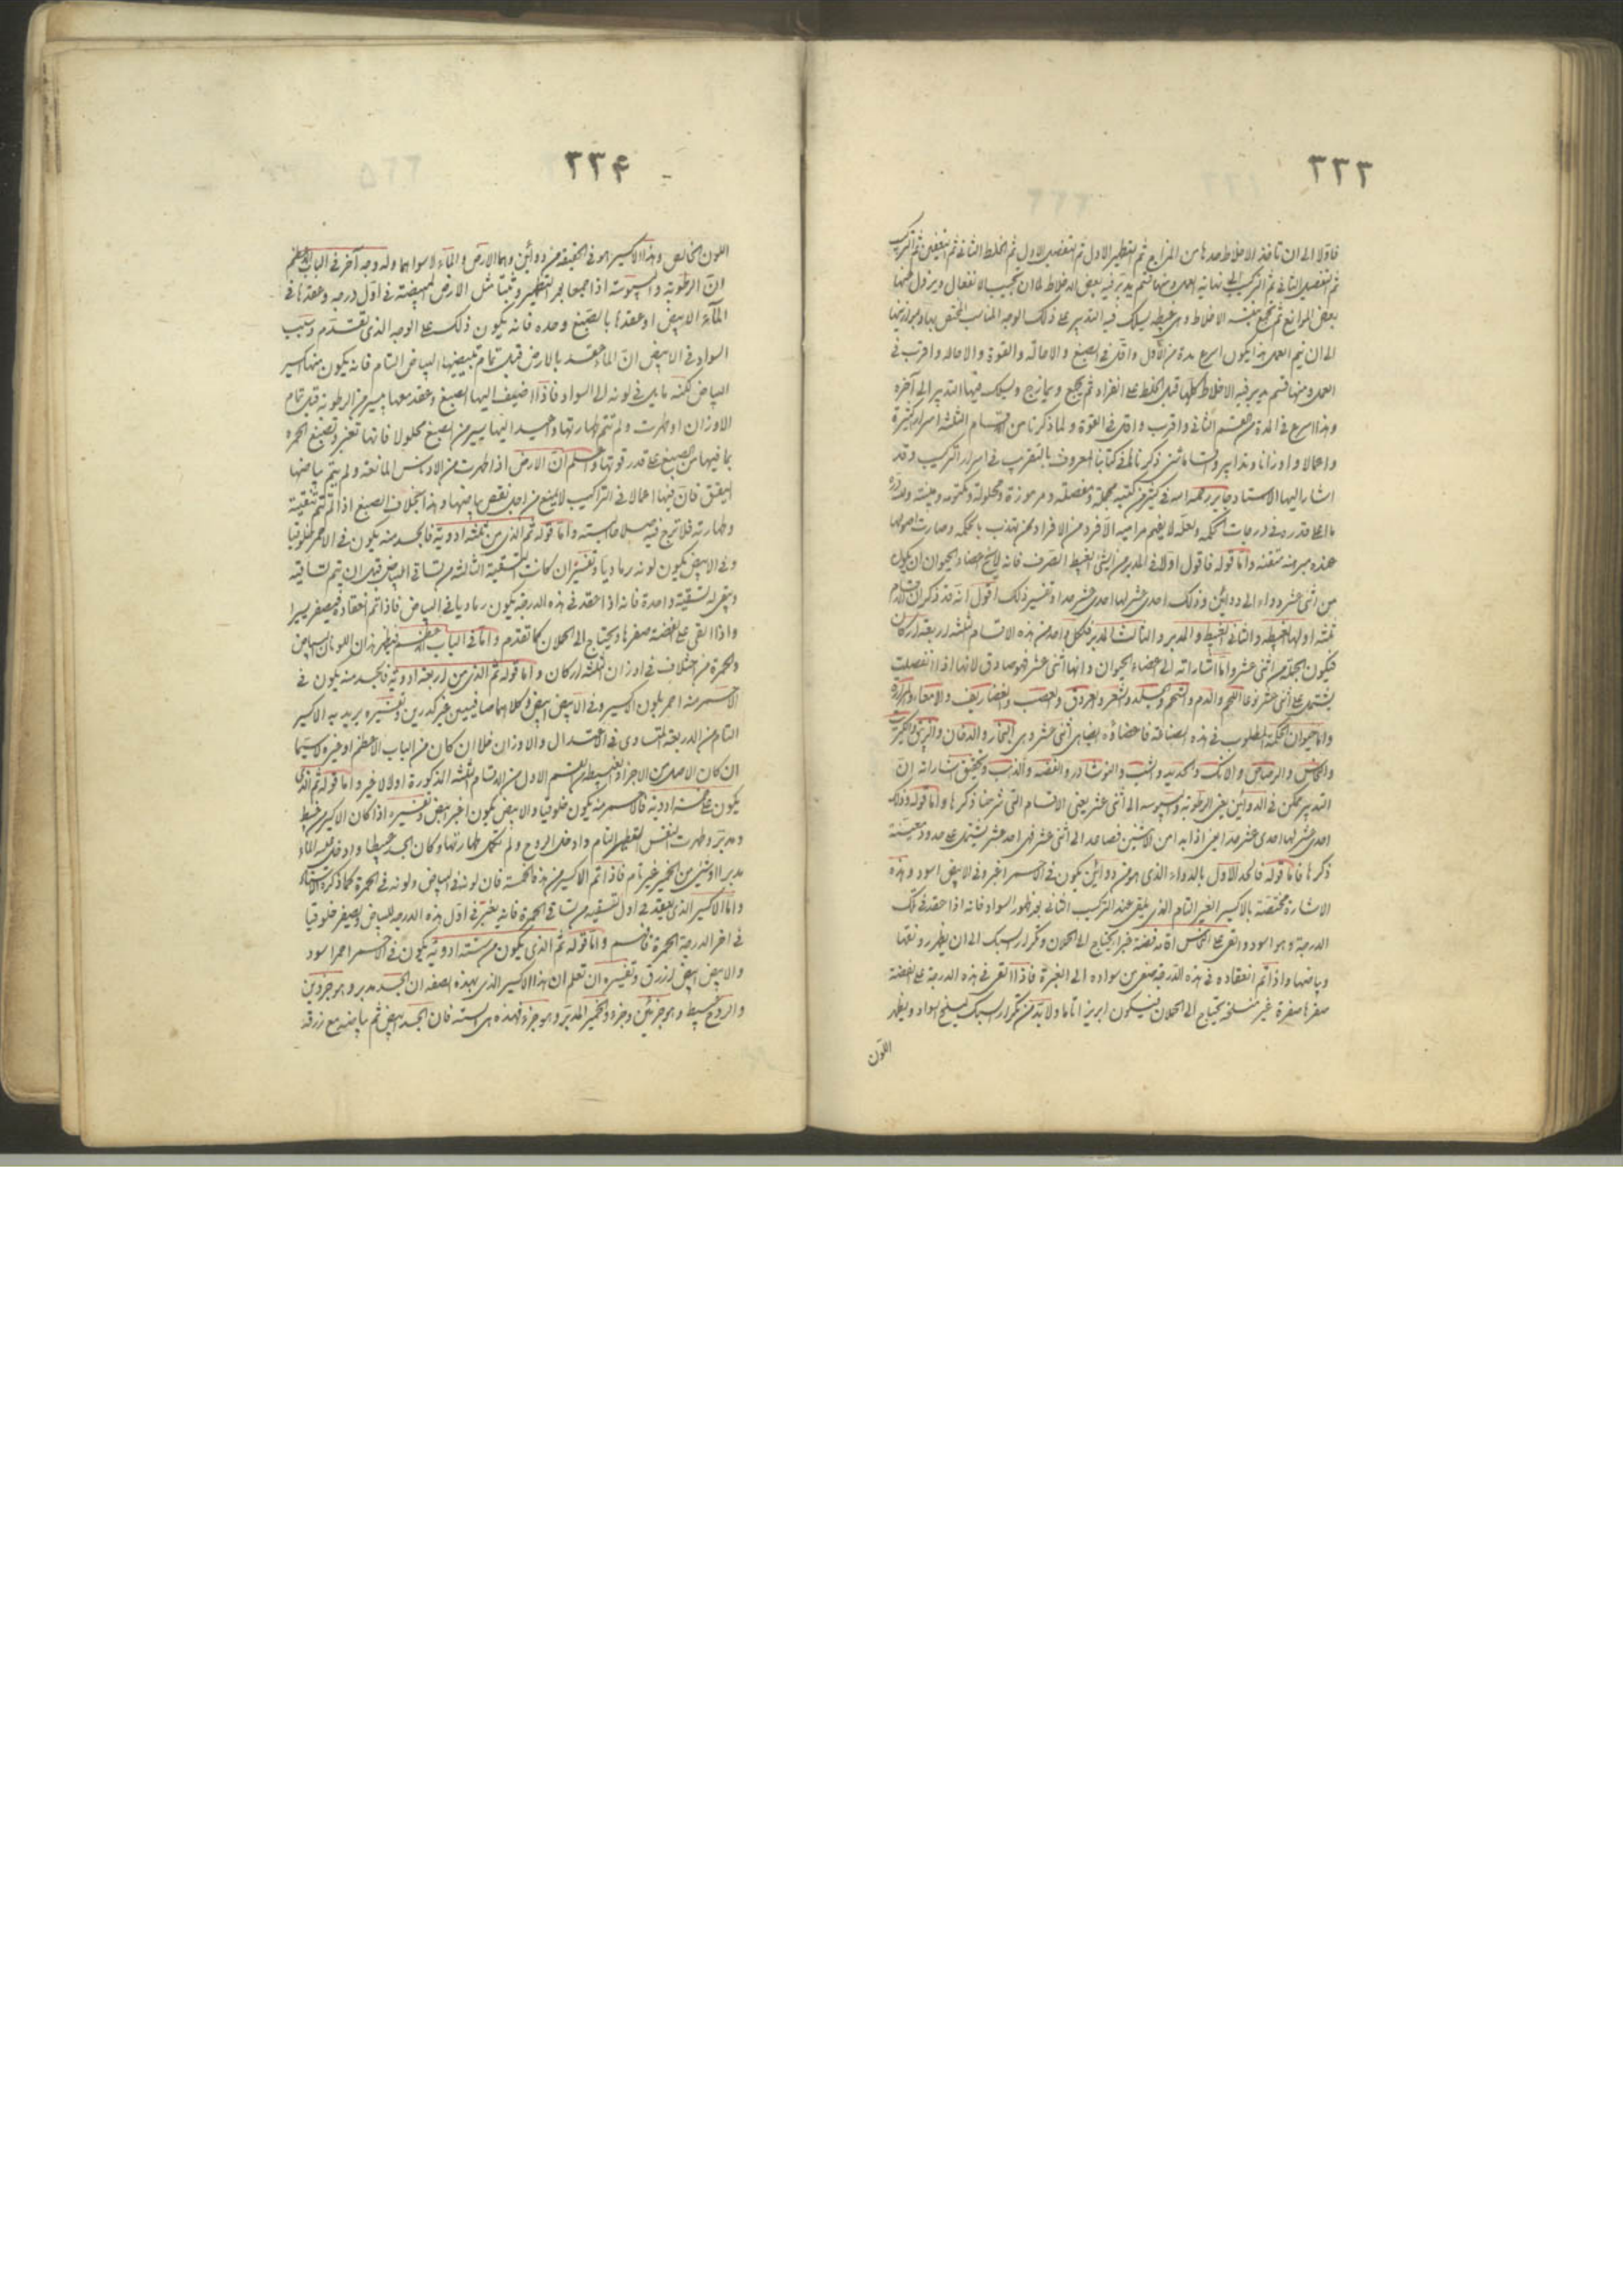 ٢٢٣
فاولا الى ان تاخذ الاخلاط حدها من المزاج ثم التقطير الاول ثم التفصيل الاول ثم الخلط الثانى ثم التعفين ثم التركيب
ثم التفصيل الثانى ثم التركيب الى نهاية العمل ومنها قسم يدبر فيه بعض الاخلاط الى ان تجيب الانفعال ويزول عنها
بعض الموانع ثم تجمع بقية الاخلاط وهى عبيطه يسلك فيه التدبير على ذلك الوجه المناسب المختص بها وموازينها
الى ان يتم العمل هذا يكون اسرع مدة من الاول واقل فى الصبغ والاماتة والقوة والاحاله واقرب فى
العمل ومنها قسم يدبر فيه الاخلاط كلها قبل الخلط على انفراد ثم يجمع ويمازج ويسلك فيها التدبير الى آخره
وهذا اسرع فى المدة من القسم الثانى واقرب واقل فى القوة ولما ذكرنا من الاقسام الثلثة اسرار كثيرة
واعمالا واوزانا وتدابير واشارات ذكرنا لها فى كتابنا المعروف بالتقريب فى اسرار التركيب وقد
اشار اليها الاستاد جابر رحمه الله فى كثير من كتبه مجملة ومفصلة ومرموزة ومحلولة ومكتومه ومبينة
ما اعلا قدره فى درجات الحكمه ولعله لا يفهم مراميه الا فرد من الافراد ممن تهذب بالحكمه وصارت اصولها
عنده مبرهنه متقنة واما قوله فاقول اولا فى المدبر من الشئ الغبيط الصرف فانه لابد لاعضاء الحيوان ان يكون
من اثنى عشر دواء الى دوائين وذلك احدى عشر لها احدى عشر حدا وتفسير ذلك اقول انه قد ذكر ان الاقسام
ثلثة اولها الغبيطه والثانى الغبيط والمدبر والثالث المدبر فلكل واحد من هذه الاقسام الثلثه اربعة اركان
فيكون الجملة من اثنى عشر واما اشاراته الى اعضاء الحيوان وانها اثنى عشر فهو صادق لانها اذا انفصلت
يشتمل على اثنى عشر نوعا اللحم والدم والشحم والجلد والشعر والعروق والعصب والغضاريف والامعاء والمراره
واما حيوان الحكمة المطلوب فى هذه الصناعة فاعضاؤه ايضا هى اثنى عشر وهى البخار والدخان والزيبق والكبريت
والنحاس والرصاص والانك والحديد والشب والنوشادر والفضه والذهب وتحقيق اشاراته ان
التدبير يمكن فى الدوائين يعنى الرطوبه واليبوسه الى اثنى عشر يعنى الاقسام التى شرحنا ذكرها واما قوله وذلك
احدى عشر لها احدى عشر حدا يعنى اذا ابدا من الاثنين فصاعدا الى اثنى عشر فهى احد عشر يشتمل على حدود معينة
ذكرها فاما قوله فالحد الاول بالدواء الذى هو من دوائين يكون فى الاحمر اغبر وفى الابيض اسود وهذه
الاشارة مختصة بالاكسير الغير التام الذى يلقى عند التركيب الثانى بعد ظهور السواد فانه اذا عقد فى تلك
الدرجة وهو اسود والقى على النحاس اقامه فضة غبرا يحتاج الى الحملان وتكرار السبك الى ان يظهر رونقها
وبياضها واذا تم انعقاده فى هذه الدرجة ينتقل من سواده الى الغبرة فاذا القى فى هذه الدرجة على الفضة
صفرها صفرة غير منسلخة يحتاج الى الحملان فيكون ابريزا تاما ولا بد من تكرار السبك لينسلخ السواد ويظهر
اللون
٢٢۴
اللون الخالص وهذا الاكسير هو فى الحقيقة من دوائين وهما الارض والماء لا سواهما وله وجه آخر فى الباب الاعظم
ان الرطوبه واليبوسه اذا اجتمعا بعد التطهير وثبتا مثل الارض المبيضة فى اول درجه وعقدها فى
الماء الابيض او عقدها بالصبغ وحده فانه يكون ذلك على الوجه الذى تقدم وسبب
السواد فى الابيض ان الماء عقد بالارض قبل تمام تبييضها البياض التام فانه يكون منها اكسير
البياض لكنه مايل فى لونه الى السواد فاذا اضيف اليها الصبغ وعقد معها يسير من الرطوبه قبل تمام
الاوزان او طهرت ولم تتم طهارتها واعيد اليها يسير من الصبغ محلولا فانها تغبر وتصبغ الحمره
بما فيها من الصبغ على قدر قوتها واعلم ان الارض اذا طهرت من الادناس المانعة ولم يتم بياضها
اليقق فان فيها اعمالا فى التراكيب لا يمنع من اجل نقص بياضها وهذا بخلاف الصبغ اذا لم تتم تنقيته
وطهارته فلا ترج فيه صلاحا البته واما قوله ثم الذى من ثلثه ادوية فالجسد منه يكون فى الاحمر خلوقيا
وفى الابيض يكون لونه رماديا وتفسيره ان كانت التسقية الثالثه من تساقى البياض قبل ان يتم تساقيه
وبقى له تسقية واحدة فانه اذا عقد فى هذه الدرجة يكون رماديا فى البياض فاذا تم انعقاده فيصفر يسيرا
واذا القى على الفضة صفرها ويحتاج الى الحملان كما تقدم واما فى الباب الاعظم فيظهر هذان اللونان البياض
والحمرة من اختلاف فى اوزان الثلثه اركان واما قوله ثم الذى من اربعة ادوية فالجسد منه يكون فى
الاحمر منه احمر بلون الاكسير وفى الابيض ابيض وكلاهما صافيين غير كدرين وتفسيره يريد به الاكسير
التام من الاربعة المتساوى فى الاعتدال والاوزان فلا ان كان من الباب الاعظم او غيره لا سيما
ان كان الاصل من الاجزاء الغبيطه من القسم الاول من الاقسام الثلثه المذكورة اولا لا غير واما قوله ثم الذى
يكون على خمسة ادويه فالاحمر منه يكون خلوقيا والابيض يكون اغبر ابيض وتفسيره اذا كان الاكسير من غبيط
ومدبر وطهرت النفس التطهير التام وادخل الروح ولم تكمل طهارتها وكان الجسد غبيطا وادخل عليه الماء
مدبرا او شئ من الخمير غير تام فاذا تم الاكسير من هذه الخمسة فان لونه فى البياض ولونه فى الحمرة كما ذكره الاستاد
واما الاكسير الذى ينعقد فى اول تسقيه من تساقى الحمرة فانه يغبر فى اول هذه الدرجه للبياض ويصفر خلوقيا
فى اخر الدرجة الحمرة فافهم واما قوله ثم الذى يكون من ستة ادوية يكون فى الاحمر احمر اسود
والابيض ابيض ازرق وتفسيره ان تعلم ان هذا الاكسير الذى بهذه الصفه ان الجسد مدبر وهو جزوين
والروح غبيط وهو جزئين وجزء والخمير المدبر وهو جزء فهذه هى السته فان الجسد ابيض ثم بياضه مع زرقه